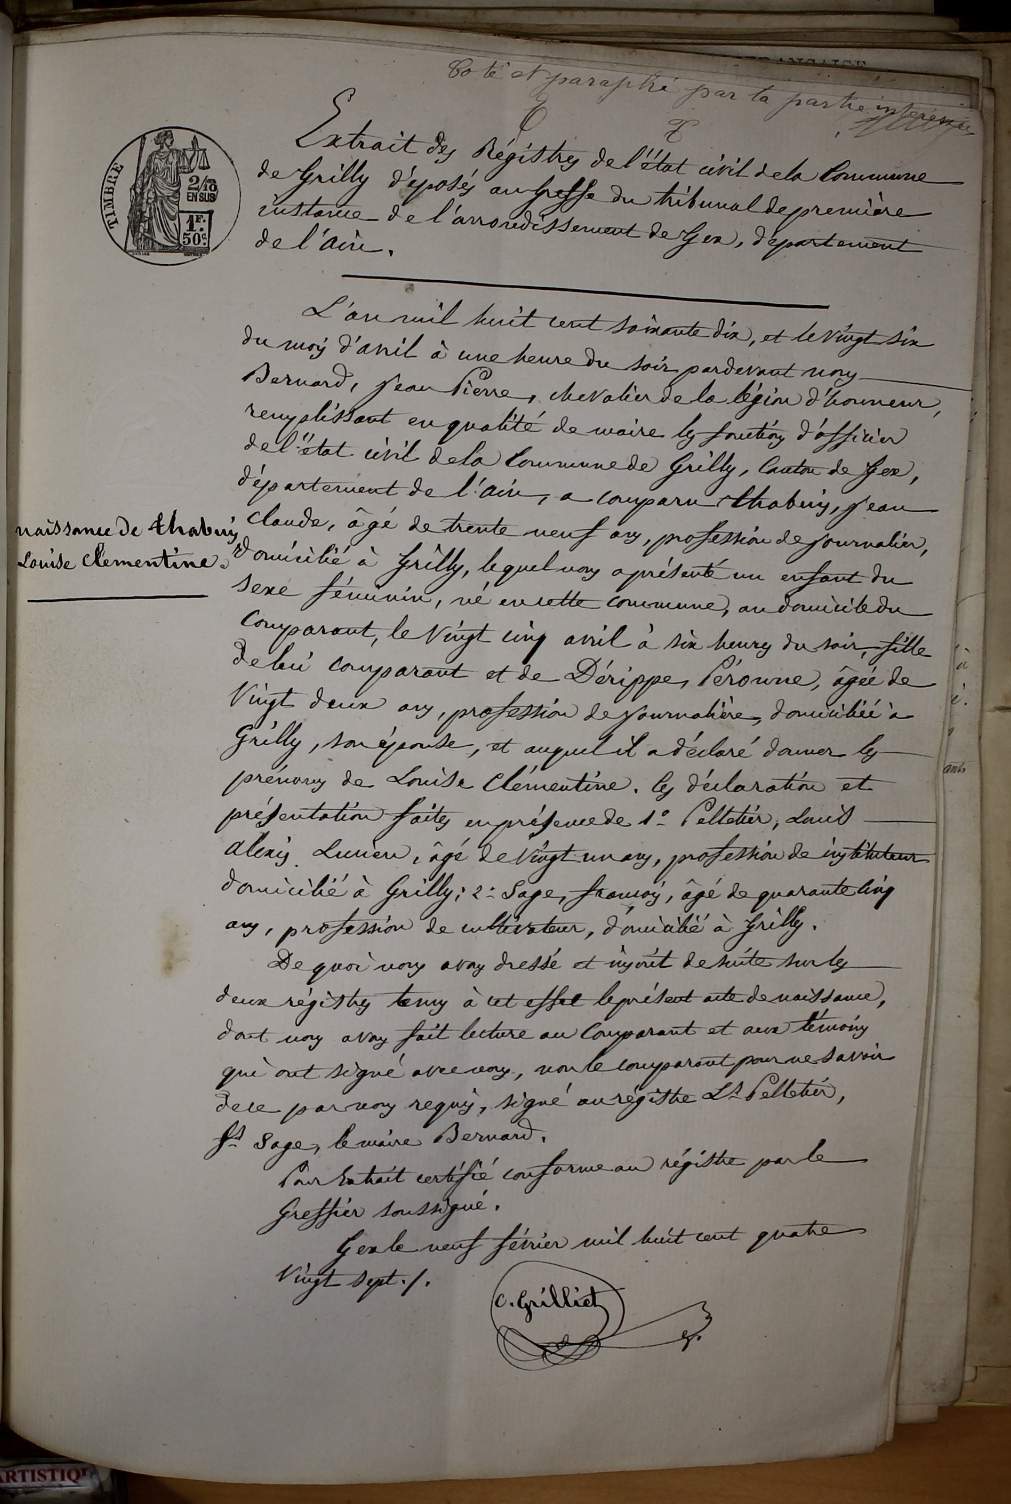 Coté et paraphé par la partie intéressée
TIMBRE
2/10
EN SUS
1F.
50c
Extrait des Régistres de l'état civil de la Commune
de Grilly déposés au Greffe du tribunal de première
instance de l'arrondissement de Gex, département
de l'Ain.
L'an mil huit cent soixante dix, et le vingt six
du mois d'avril à une heure du soir pardevant nous
Bernard, Jean Pierre, chevalier de la légion d'honneur,
remplissant en qualité de maire les fonctions d'officier
de l'état civil de la Commune de Grilly, Canton de Gex,
département de l'Ain, a comparu thabuis, Jean
Claude, âgé de trente neuf ans, profession de journalier,
domicilié à Grilly, lequel nous a présenté un enfant du
sexe féminin, né en cette commune, au domicile du
Comparant, le vingt cinq avril à six heures du soir, fille
de lui comparant et de Dérippe, Péronne, âgée de
vingt deux ans, profession de journalière, domiciliée à
Grilly, son épouse, et auquel il a déclaré donner les
prénoms de Louise Clémentine. les déclaration et
présentation faites en présence de 1° Pelletier, Louis
Alexis Lucien, âgé de vingt un ans, profession de instituteur
domicilié à Grilly; 2° Sage, françois, âgé de quarante cinq
ans, profession de cultivateur, domicilié à Grilly.
De quoi nous avons dressé et inscrit de suite sur les
deux régistres tenus à cet effet le présent acte de naissance,
dont nous avons fait lecture au Comparant et aux témoins
qui ont signé avec nous, non le comparant pour ne savoir
de ce par nous requis, signé au régistre Ls Pelletier,
fs Sage, le maire Bernard.
Pour Extrait certifié conforme au régistre par le
Greffier soussigné.
Gex le neuf février mil huit cent quatre
vingt sept./.
C. Grilliet
naissance de thabuis
Louise Clementine.
ARTISTIQU